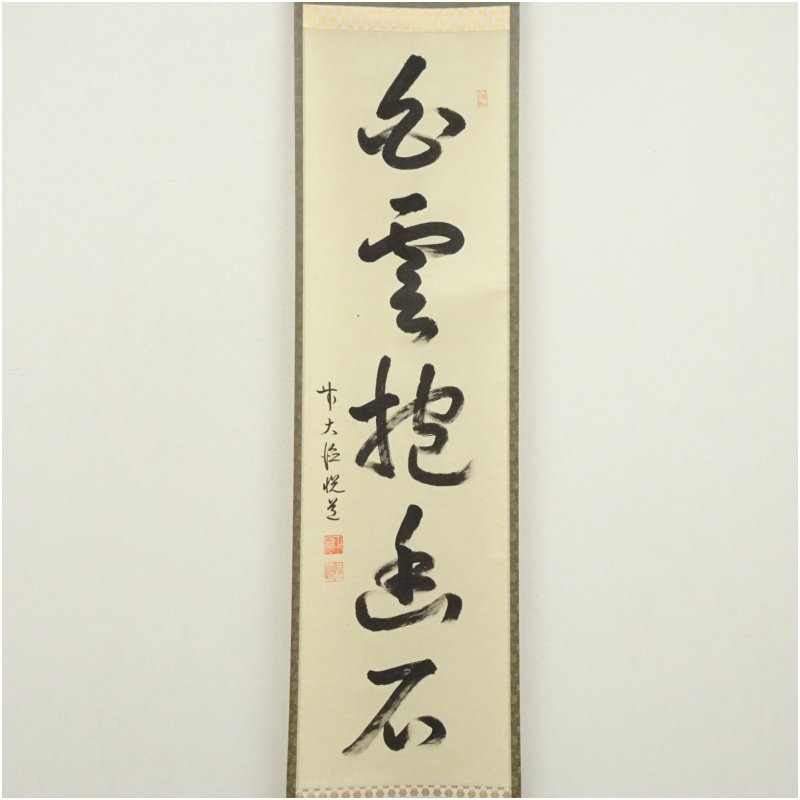 白雲抱幽石
紫大徳悦道